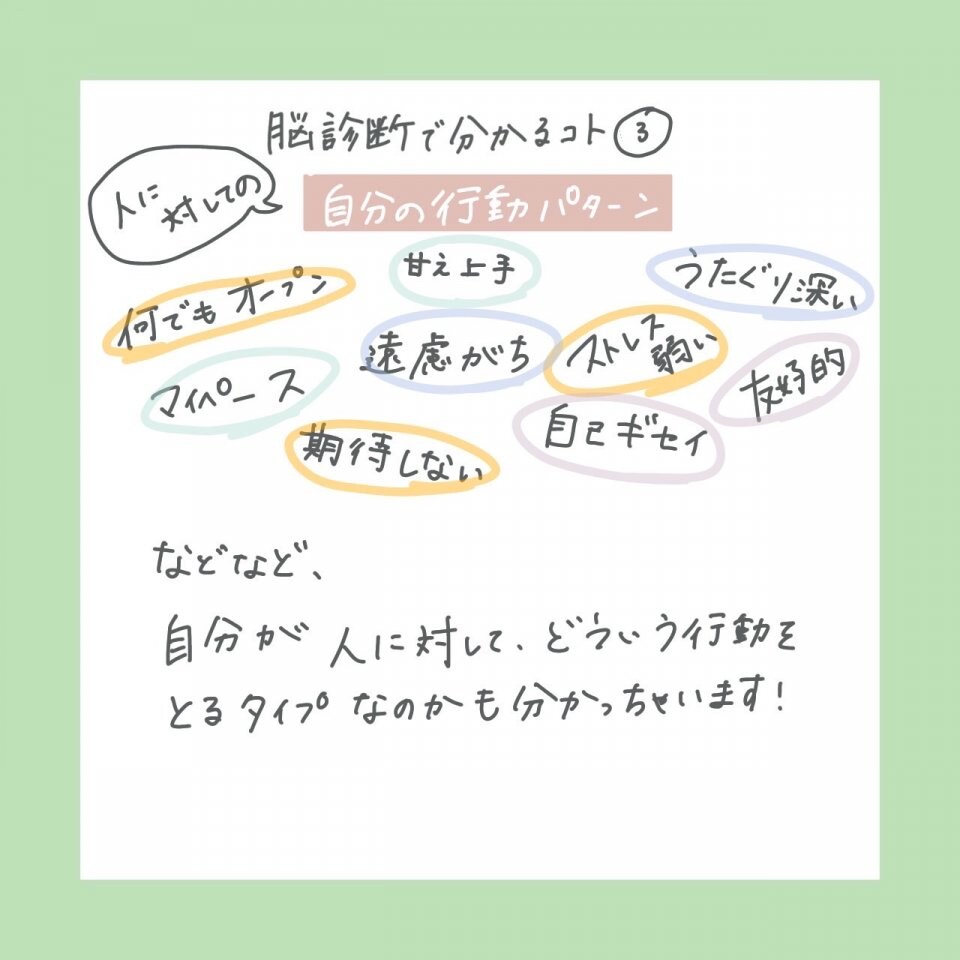 脳診断で分かるコト③
人に
対しての
自分の行動パターン
甘え上手
うたぐり深い
何でもオープン
遠慮がち
ストレス
弱い
マイペース
友好的
自己ギセイ
期待しない
などなど、
自分が人に対して、どういう行動を
とるタイプなのかも分かっちゃいます!